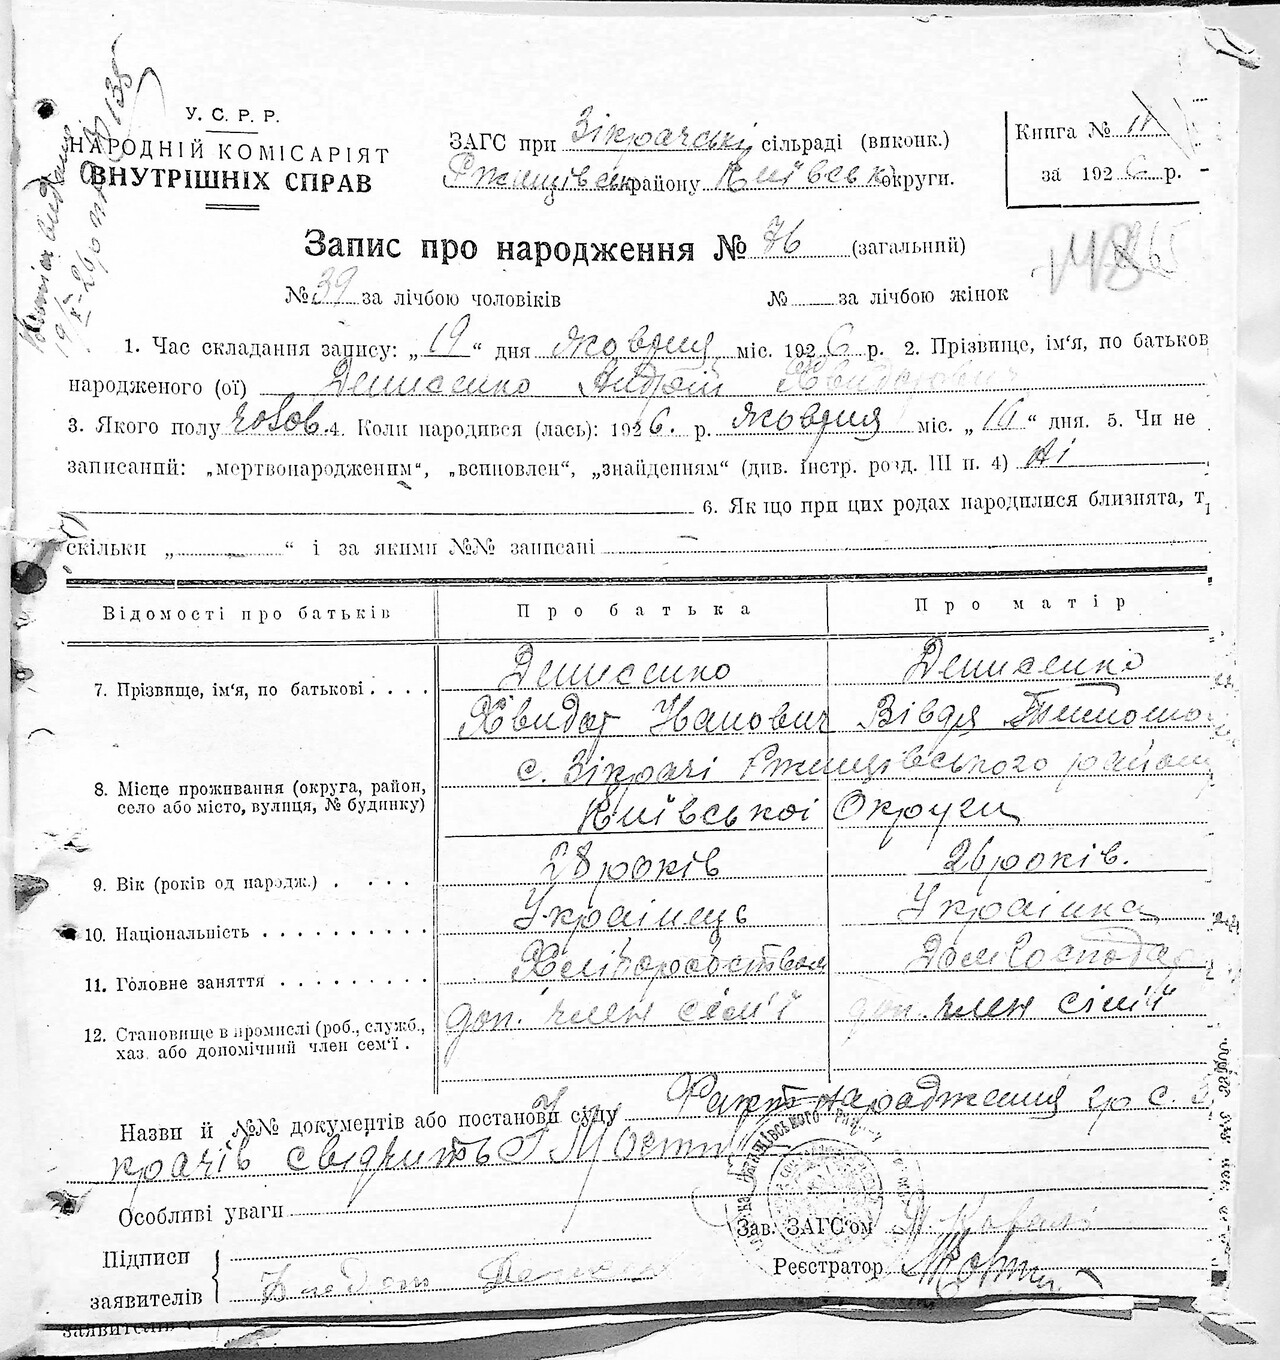 У. С. Р. Р.
НАРОДНІЙ КОМІСАРІЯТ
ВНУТРІШНІХ СПРАВ
ЗАГС при Зікрачські сільраді (виконк.)
Ржищівськ району Київськ округи.
Книга № II
за 1926 р.
Запис про народження № 76 (загальний)
№ 39 за лічбою чоловіків № за лічбою жінок
1. Час складання запису: „19“ дня жовдня міс. 1926 р. 2. Прізвище, ім'я, по батьков
народженого (ої) Денисенко Андрій
3. Якого полу чолов. 4. Коли народився (лась): 1926. р. жовдня міс. „16“ дня. 5. Чи не
записаний: „мертвонародженим“, „всиновлен“, „знайденням“ (див. інстр. розд. III п. 4) Ні
6. Якщо при цих родах народилися близнята, т
скільки „ “ і за якими №№ записані
Відомості про батьків Про батька Про матір
7. Прізвище, ім'я, по батькові Денисенко Денисенко
Іванович Вівдя
8. Місце проживання (округа, район, село або місто, вулиця, № будинку) с. Зікрачі Ржищівського району
Київської Округи
9. Вік (років од народж.) 28 років 26 років.
10. Національність Украінець Украінка
11. Головне заняття Хліборобством Домгосподар
12. Становище в промислі (роб., служб., хаз. або допомічний член сем'ї. доп. член сім'ї доп. член сім'ї
Назви й №№ документів або постанови суду Факт народження гр с. Зі
крачів свідчить
Особливі уваги
Зав. ЗАГС'ом
Підписи
заявителів
Реєстратор
заявителів